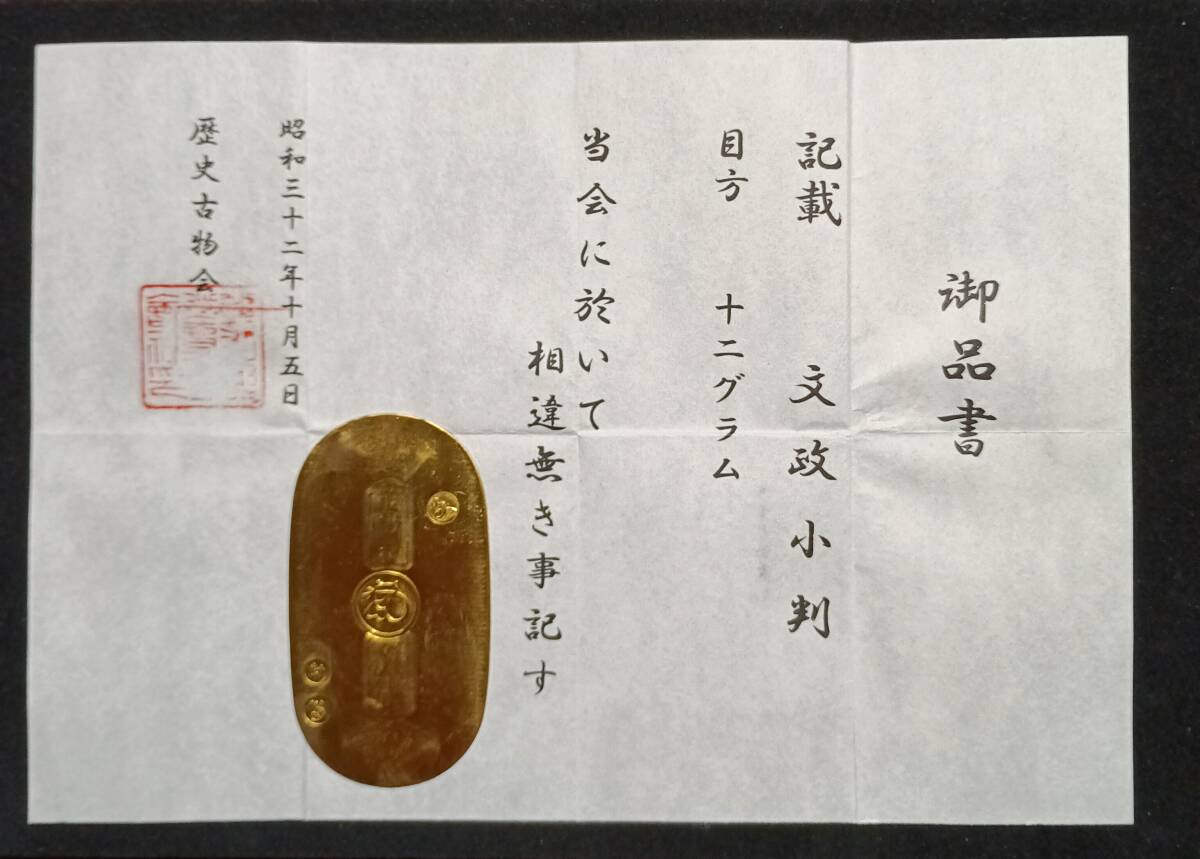 御品書
記載 文政小判
目方 十二グラム
当会に於いて
相違無き事記す
昭和三十二年十月五日
歴史古物会